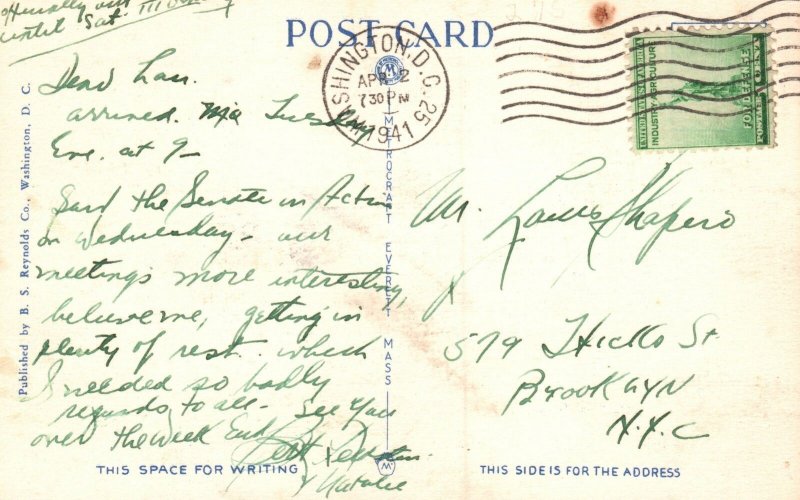 until Sat.
POST CARD
WASHINGTON, D.C. 25
APR 2
7 30 PM
1941
INDUSTRY AGRICULTURE
FOR DEFENSE
Dear Lou.
arrived. Tuesday
Eve. at 9 -
Said the Senate in Action
on Wednesday - our
meetings more interesting,
believe me, getting in
plenty of rest. which
I needed so badly
regards to all - See you
over the week End
Bert
& Natalie
Mr. Louis Shapero
579 Hicks St.
Brooklyn
N.Y.C
Published by B. S. Reynolds Co., Washington, D. C.
METROCRAFT EVERETT MASS
THIS SPACE FOR WRITING
THIS SIDE IS FOR THE ADDRESS